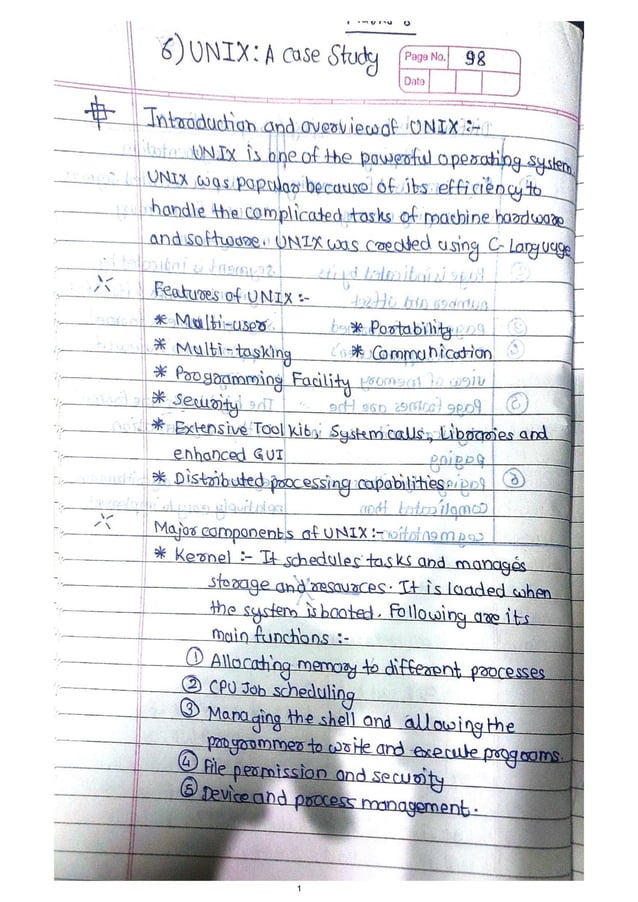 6) UNIX: A Case Study
Page No. 98
Date
Introduction and overview of UNIX :-
UNIX is one of the powerful operating system.
UNIX was popular because of its efficiency to
handle the complicated tasks of machine hardware
and software. UNIX was created using C-Language
Features of UNIX :-
* Multi-user * Portability
* Multi-tasking * Communication
* Programming Facility
* Security
* Extensive Tool kit, System calls, Libraries and
enhanced GUI
* Distributed processing capabilities
Major components of UNIX :-
* Kernel :- It schedules tasks and manages
storage and resources. It is loaded when
the system is booted. Following are its
main functions :-
① Allocating memory to different processes
② CPU Job scheduling
③ Managing the shell and allowing the
programmer to write and execute programs.
④ File permission and security
⑤ Device and process management.
1